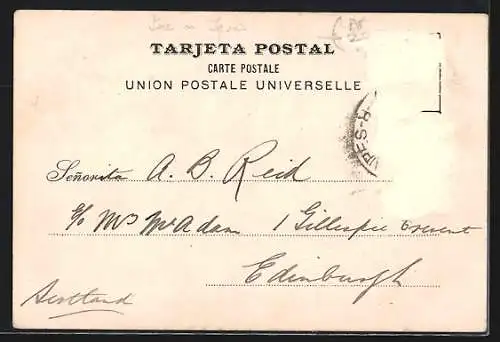 TARJETA POSTAL
CARTE POSTALE
UNION POSTALE UNIVERSELLE
Señorita A. B. Reid
c/o Mrs McAdam 1 Gillespie Crescent
Edinburgh
Scotland